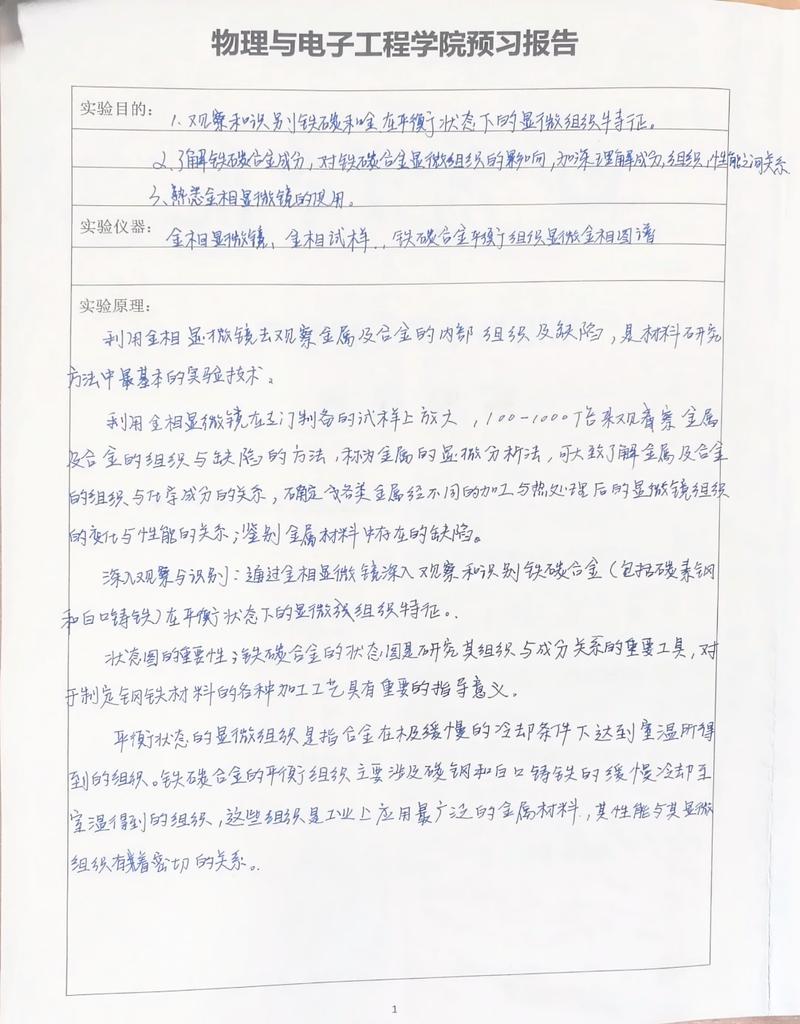 物理与电子工程学院预习报告
实验目的：
1. 观察和识别铁碳和金在平衡状态下的显微组织特征。
2. 了解铁碳合金成分，对铁碳合金显微组织的影响，加深理解成分，组织，性能之间关系
3、熟悉金相显微镜的使用。
实验仪器：
金相显微镜、金相试样、铁碳合金平衡组织显微金相图谱
实验原理：
利用金相显微镜去观察金属及合金的内部组织及缺陷，是材料研究
方法中最基本的实验技术。
利用金相显微镜在专门制备的试样上放大，100-1000倍来观着察金属
及合金的组织与缺陷的方法，称为金属的显微分析法，可大致了解金属及合金
的组织与化学成分的关系，确定各类金属经不同的加工与热处理后的显微镜组织
的变化与性能的关系；鉴别金属材料中存在的缺陷。
深入观察与识别：通过金相显微镜深入观察和识别铁碳合金（包括碳素钢
和白口铸铁）在平衡状态下的显微组织特征。.
状态图的重要性；铁碳合金的状态图是研究其组织与成分关系的重要工具，对
于制定钢铁材料的各种加工工艺具有重要的指导意义。
平衡状态的显微组织是指合金在极缓慢的冷却条件下达到室温所得
到的组织。铁碳合金的平衡组织主要涉及碳钢和白口铸铁的缓慢冷却至
室温得到的组织，这些组织是工业上应用最广泛的金属材料，其性能与其显微
组织有着密切的关系。.
1